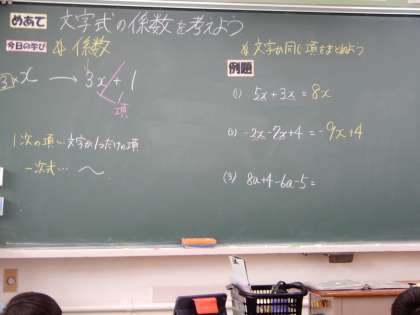 めあて 文字式の係数を考えよう
今日の学び ※係数
③×x → 3x + 1
項
1次の項…文字が1つだけの項
一次式…〜
※文字が同じ項をまとめよう
例題
(1) 5x+3x=8x
(2) -2x-7x+4=-9x+4
(3) 8a+4-6a-5=